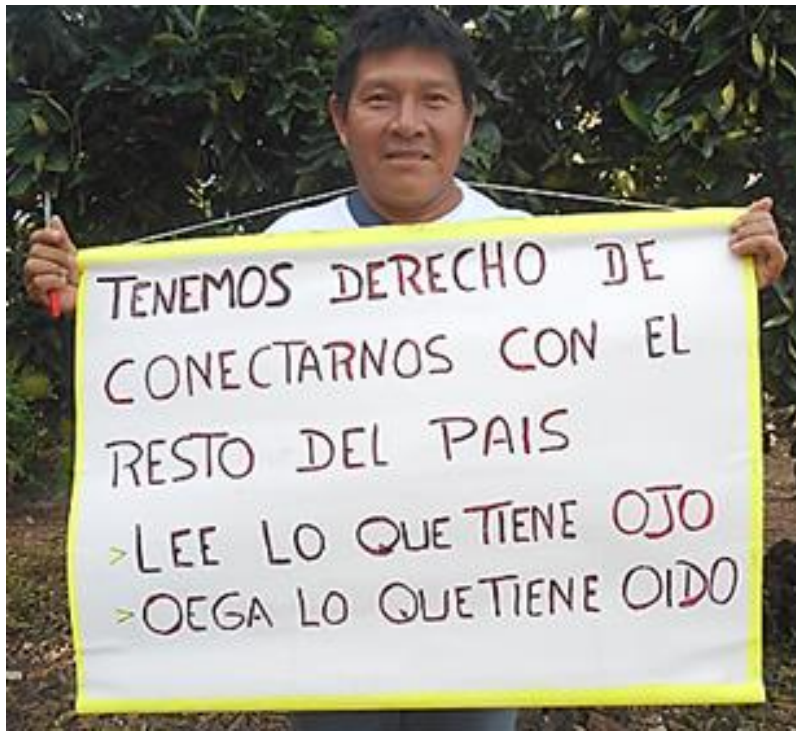 TENEMOS DERECHO DE
CONECTARNOS CON EL
RESTO DEL PAIS
> LEE LO QUE TIENE OJO
> OEGA LO QUE TIENE OIDO